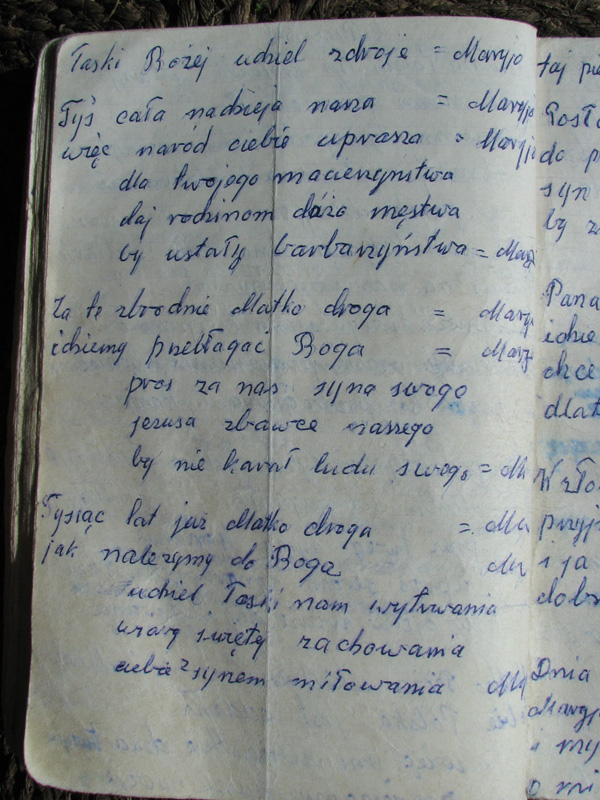 Łaski Bożej udziel zdroje = Maryjo
Tyś cała nadzieja nasza = Maryjo
więc naród ciebie uprasza = Maryjo
dla twojego macierzyństwa
daj rodzinom dużo męstwa
by ustały barbarzyństwa = Mary
Za te zbrodnie Matko droga = Mary
idziemy przebłagać Boga = Mary
proś za nas syna swego
jezusa zbawce naszego
by nie karał ludu swego = Ma
Tysiąc lat już Matko droga = Ma
jak należymy do Boga Ma
udziel łaski nam wytrwania
wiary świętej zachowania
ciebie z synem miłowania Ma
taj
do p
syn
by z
Pana
idzie
chce
dlat
przyj
i ja
dobr
Dnia
Maryj
i my
o mi